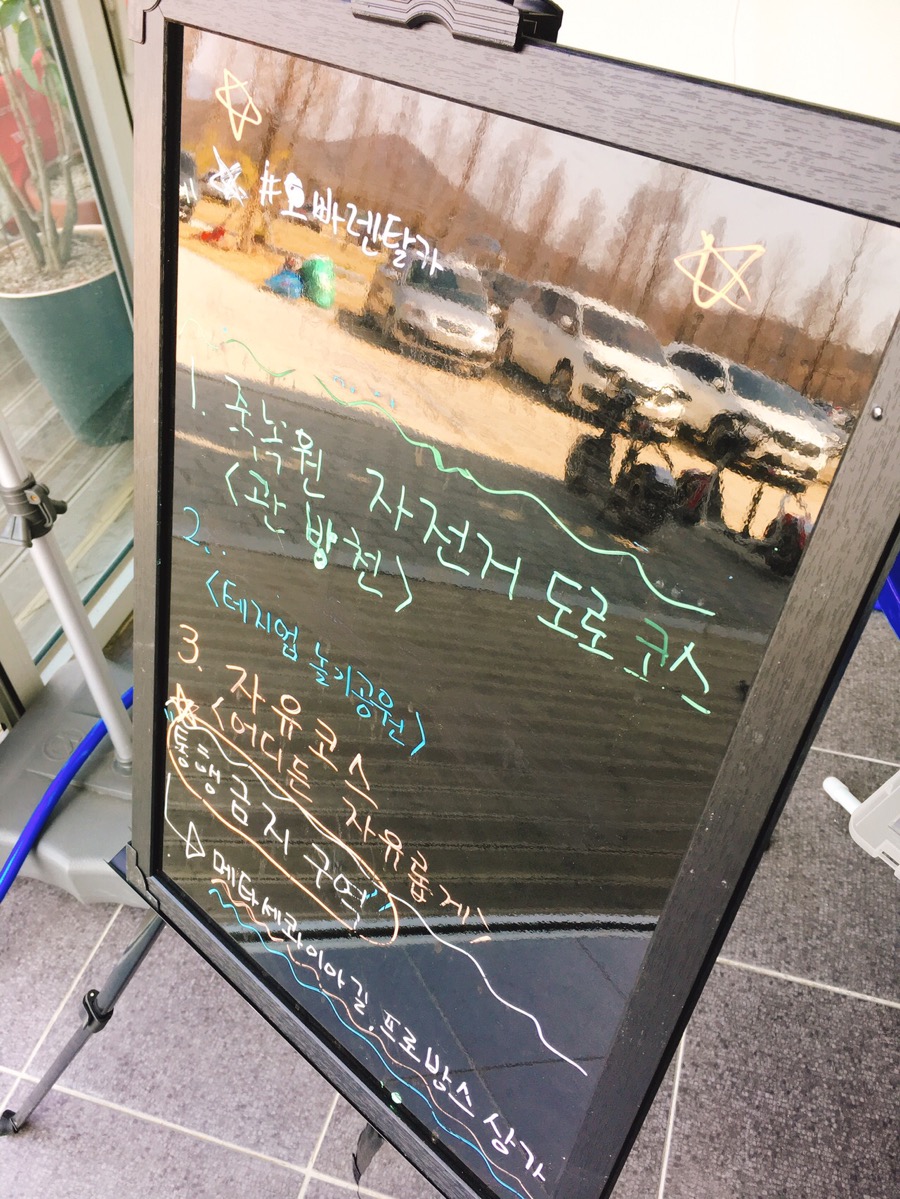 #오빠렌탈카
1. 죽녹원 자전거 도로 코스
<관방천>
2.
<테지엄 놀기공원>
3. 자유코스
<어디든 자유롭게>
통행금지 구역
▷메타세콰이아길, 프로방스 상가